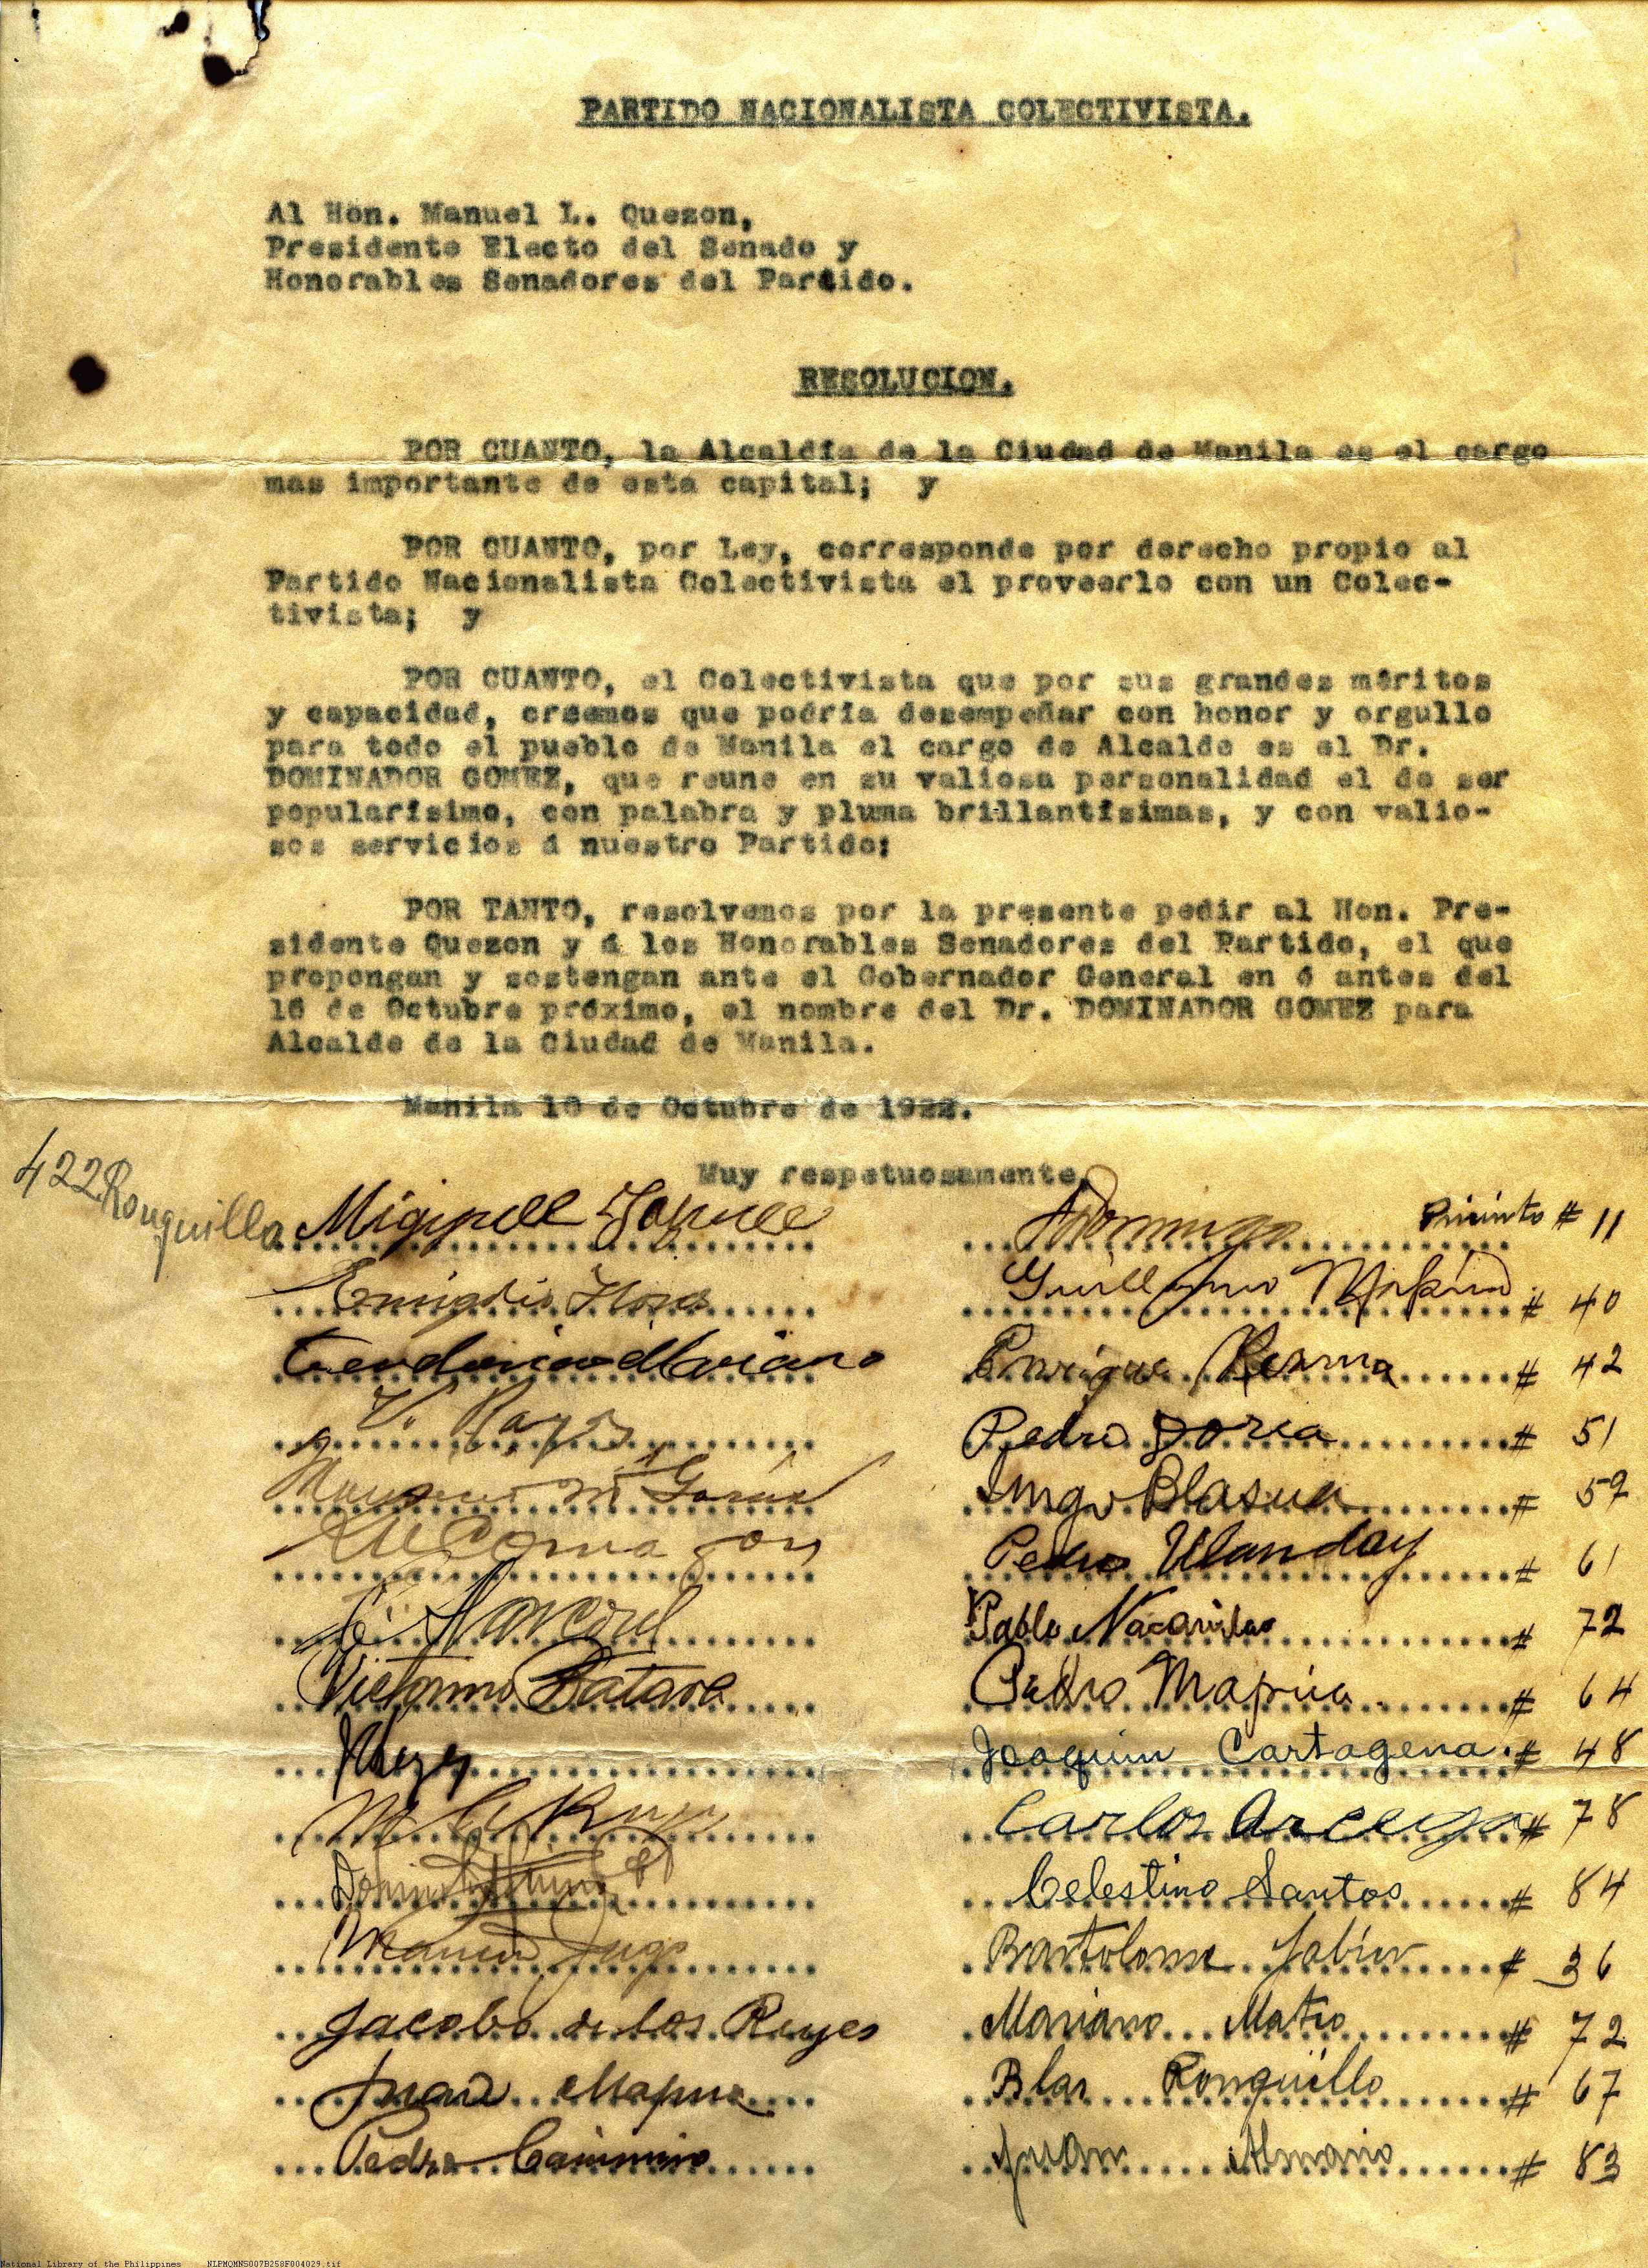 PARTIDO NACIONALISTA COLECTIVISTA.
Al Hon. Manuel L. Quezon,
Presidente Electo del Senado y
Honorables Senadores del Partido.
RESOLUCION.
POR CUANTO, la Alcaldía de la Ciudad de Manila es el cargo
mas importante de esta capital; y
POR CUANTO, por Ley, corresponde por derecho propio al
Partido Nacionalista Colectivista el proveerlo con un Colec-
tivista; y
POR CUANTO, el Colectivista que por sus grandes méritos
y capacidad, creemos que podría desempeñar con honor y orgullo
para todo el pueblo de Manila el cargo de Alcalde es el Dr.
DOMINADOR GOMEZ, que reune en su valiosa personalidad el de ser
popularísimo, con palabra y pluma brillantísimas, y con valio-
sos servicios á nuestro Partido;
POR TANTO, resolvemos por la presente pedir al Hon. Pre-
sidente Quezon y á los Honorables Senadores del Partido, el que
propongan y sostengan ante el Gobernador General en ó antes del
16 de Octubre próximo, el nombre del Dr. DOMINADOR GOMEZ para
Alcalde de la Ciudad de Manila.
Manila 10 de Octubre de 1922.
Muy respetuosamente,
422 Ronquillo
# 11
Guillermo # 40
Mariano
Enrique # 42
V. Reyes
Pedro # 51
# 59
Pedro Ulanday # 61
Pablo # 72
Victorino
Pedro Mapua # 64
Joaquin Cartagena # 48
Carlos Arcega # 78
Celestino Santos # 84
Bartolome # 36
Jacobo de los Reyes
Mariano Mateo # 72
Juan Mapua
Blas Ronquillo # 67
Pedro
Juan Almario # 83
National Library of the Philippines NLPMQMNS007B258F004029.tif